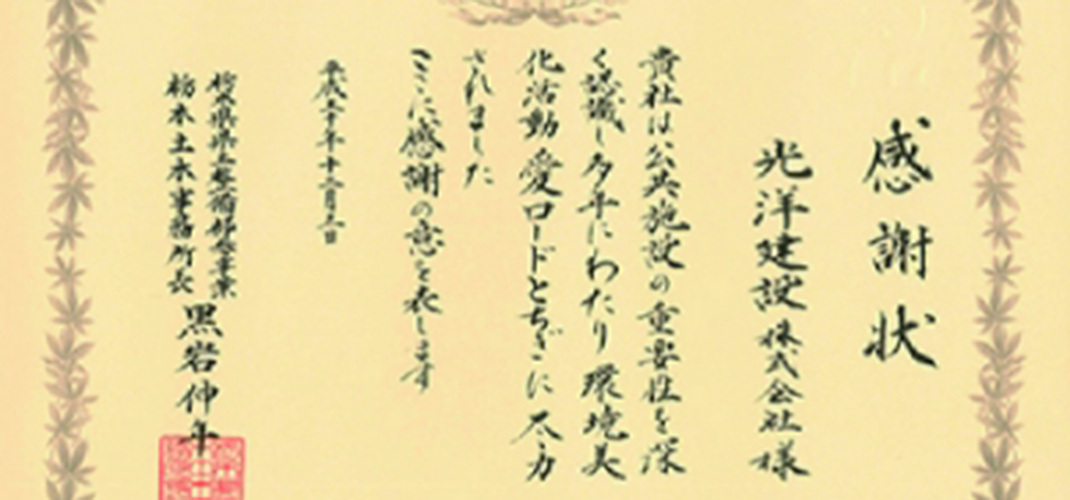 感謝状
光洋建設株式会社様
貴社は公共施設の重要性を深
く認識し多年にわたり環境美
化活動愛ロードとちぎに尽力
されました
ここに感謝の意を表します
平成二十年十二月三日
栃木県県土整備部企業
栃木土木事務所長 黒岩伸年